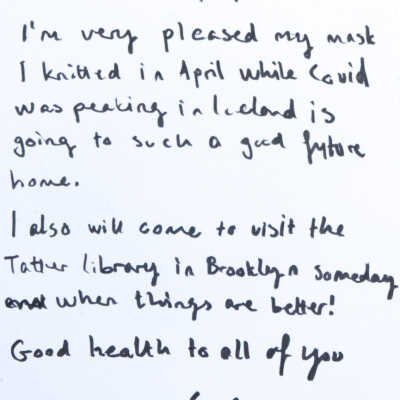 I'm very pleased my mask
I knitted in April while Covid
was peaking in Iceland is
going to such a good future
home.
I also will come to visit the
Tatter library in Brooklyn someday
when things are better!
Good health to all of you